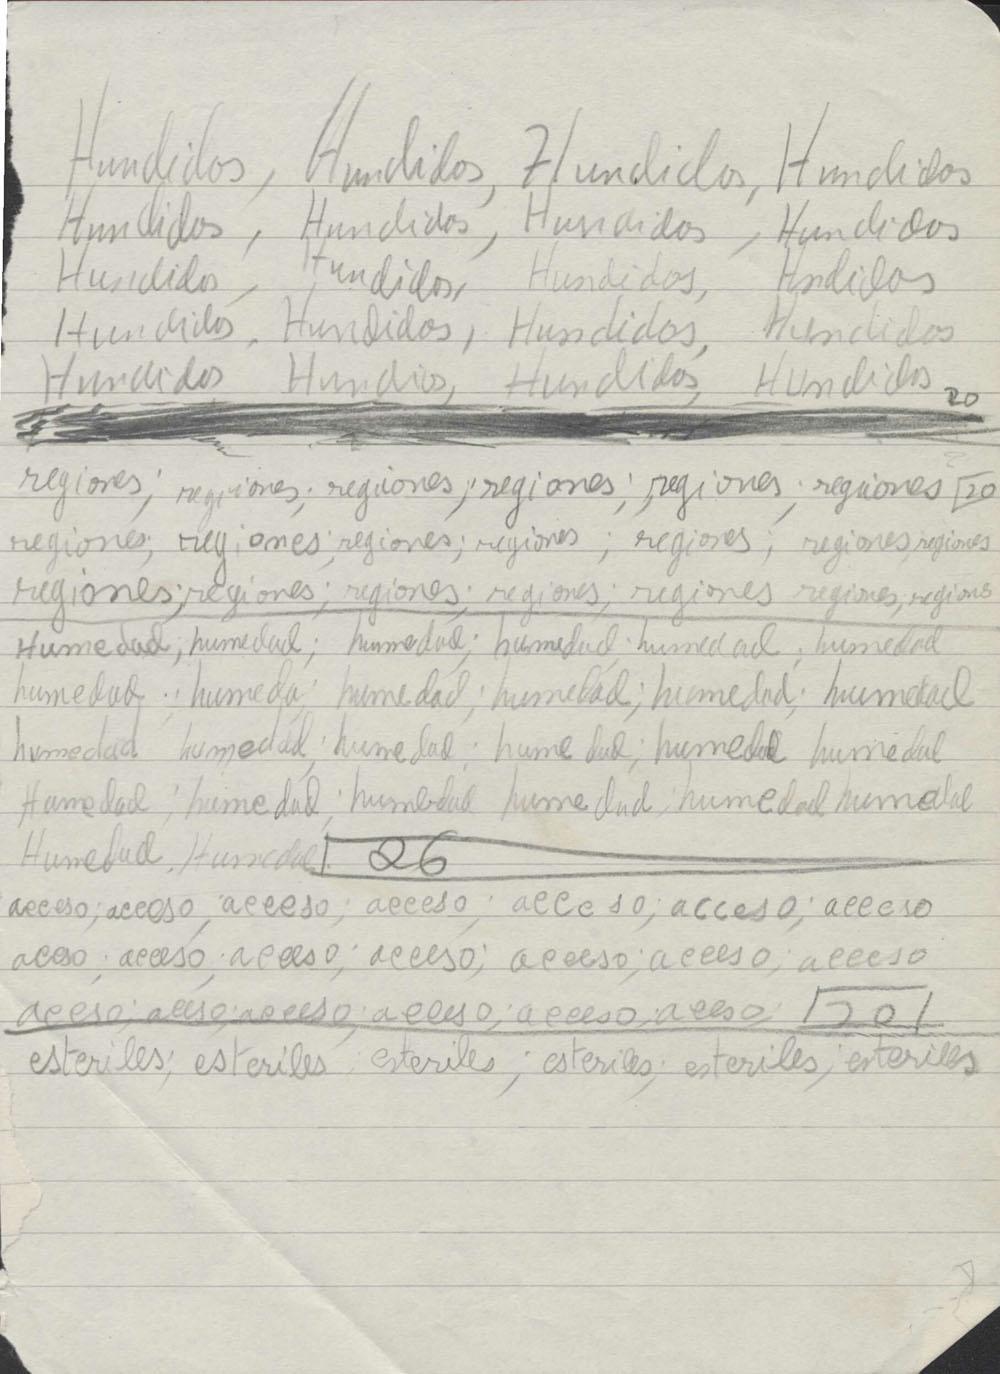 Hundidos, Hundidos, Hundidos, Hundidos
Hundidos, Hundidos, Hundidos, Hundidos
Hundidos, Hundidos, Hundidos, Hndidos
Hundidos, Hundidos, Hundidos, Hundidos
Hundidos Hundios, Hundidos, Hundidos 20
regiones; regiones; regiones; regiones; regiones; regiones 20
regiones; regiones; regiones; regiones; regiones; regiones, regiones
regiones; regiones; regiones; regiones; regiones regiones, regiones
Humedad, humedad; humedad; humedad; humedad; humedad
humedad; humeda; humedad; humedad; humedad; humedad
humedad humedad; humedad; humedad; humedad humedad
Humedad; humedad; humedad humedad; humedad humedad
Humedad, Humedad 26
acceso; acceso, acceso; acceso; acceso; acceso; acceso
aceso; acceso; acceso; acceso; acceso; acceso; acceso
acceso; acceso; acceso; acceso; acceso, acceso; 20
esteriles; esteriles; esteriles; esteriles; esteriles; esteriles